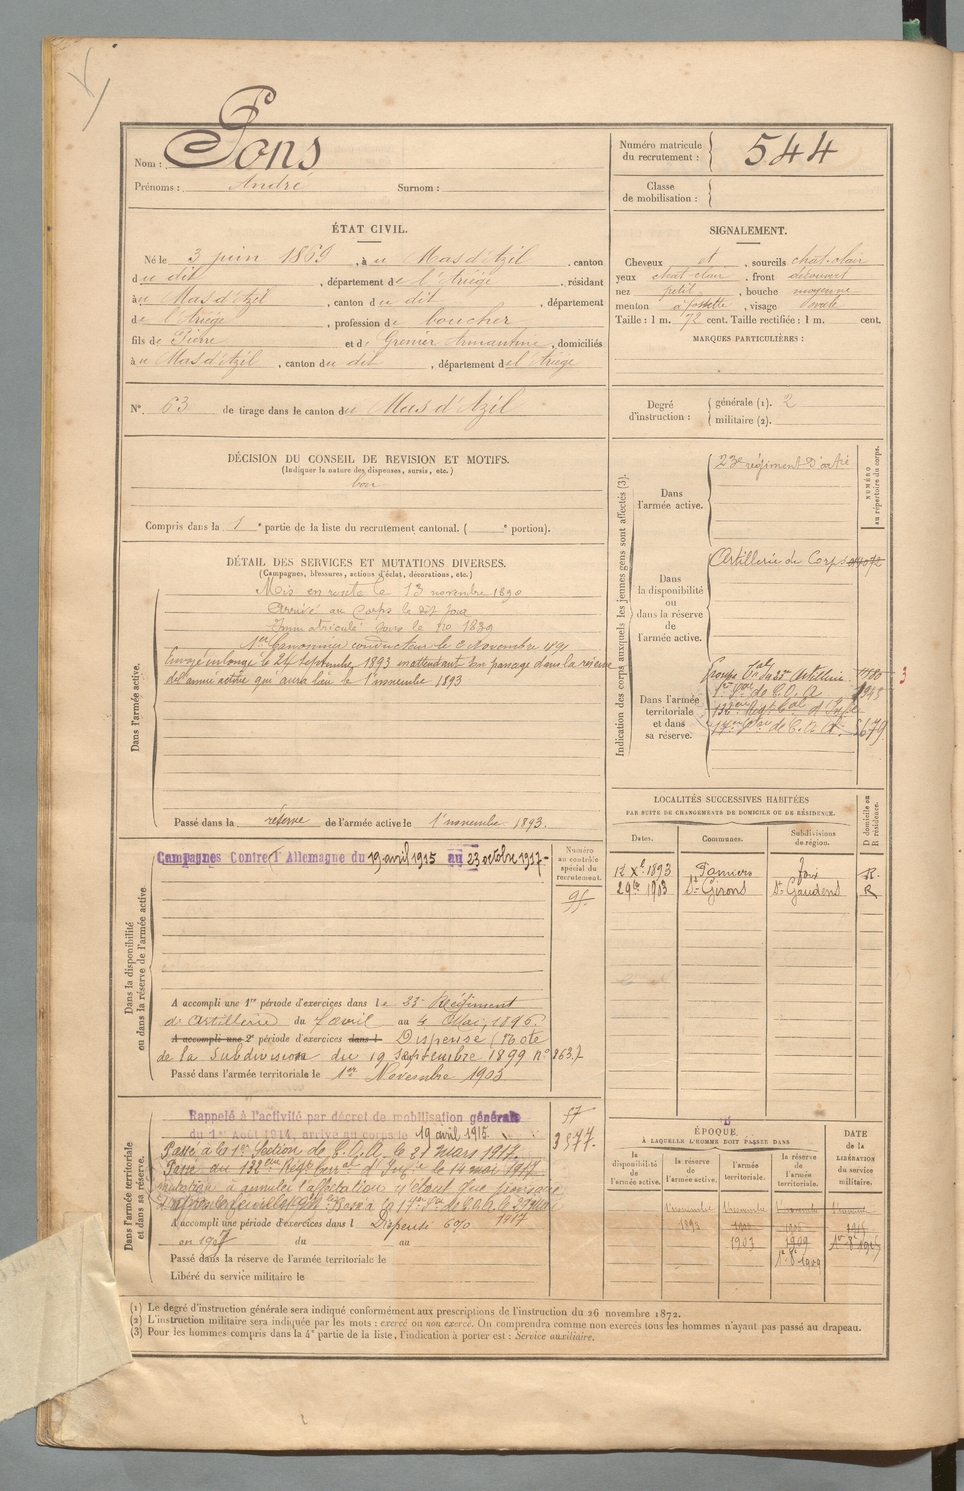 Nom : Pons
Prénoms : André Surnom :
Numéro matricule du recrutement : 544
Classe de mobilisation :
ÉTAT CIVIL.
Né le 3 juin 1869, à u Mas d'Azil, canton
du dit, département de l'Ariège, résidant
à u Mas d'Azil, canton du dit, département
de l'Ariège, profession de boucher
fils de Pierre et de Grenier Armantine, domiciliés
à u Mas d'Azil, canton du dit, département de l'Ariège
N° 63 de tirage dans le canton du Mas d'Azil
SIGNALEMENT.
Cheveux et, sourcils chat. clair
yeux chat. clair, front découvert
nez petit, bouche moyenne
menton à fossette, visage ovale
Taille : 1 m. 72 cent. Taille rectifiée : 1 m. cent.
MARQUES PARTICULIÈRES :
Degré d'instruction : générale (1). 2
militaire (2).
DÉCISION DU CONSEIL DE REVISION ET MOTIFS.
(Indiquer la nature des dispenses, sursis, etc.)
bon
Compris dans la 1e partie de la liste du recrutement cantonal. ( e portion).
DÉTAIL DES SERVICES ET MUTATIONS DIVERSES.
(Campagnes, blessures, actions d'éclat, décorations, etc.)
Dans l'armée active.
Mis en route le 13 novembre 1890
Arrivé au Corps le dit jour
Immatriculé sous le no 1839
1er Canonnier conducteur le Novembre 1891
Envoyé en congé le 24 Septembre 1893 en attendant son passage dans la réserve
de l'armée active qui aura lieu le 1er novembre 1893
Passé dans la réserve de l'armée active le 1er novembre 1893.
Indication des corps auxquels les jeunes gens sont affectés (3).
NUMÉRO au répertoire du corps.
Dans l'armée active.
23e régiment d'artie
Dans la disponibilité ou dans la réserve de l'armée active.
Artillerie du Corps
Dans l'armée territoriale et dans sa réserve.
Groupe Tal du 23e Artillerie
1re Son de C.O.A
132eme Régt Tal d'Infie
17eme Son de C.O.A. 5679
3
LOCALITÉS SUCCESSIVES HABITÉES
PAR SUITE DE CHANGEMENTS DE DOMICILE OU DE RÉSIDENCE.
Dates. Communes. Subdivisions de région. D domicile ou R résidence.
12 Xbre 1893 Pamiers Foix R.
29 1903 St Girons St Gaudens R
Dans la disponibilité ou dans la réserve de l'armée active
Campagnes Contre l'Allemagne du 19 avril 1915 au 23 octobre 1917-
Numéro au contrôle spécial du recrutement.
A accompli une 1re période d'exercices dans le 23e Régiment
d'Artillerie du 7 avril au 4 Mai 1896.
A accompli une 2e période d'exercices dans l Dispensé (Note
de la Subdivision du 19 Septembre 1899 No 863.)
Passé dans l'armée territoriale le 1er Novembre 1903
Dans l'armée territoriale et dans sa réserve.
Rappelé à l'activité par décret de mobilisation générale
du 1er Août 1914, arrivé au corps le 19 avril 1915.
57
3877.
Passé à la 1re Section de C.O.A. le 21 mars 1917.
Passé au 132eme Régt terr al d'Infie le 14 mai 1917
mutation à annuler l'affectation n'étant que
Passé à la 17eme Son de C.O.A. le
1917
A accompli une période d'exercices dans l Dispensé
en 1907 du au
Passé dans la réserve de l'armée territoriale le
Libéré du service militaire le
ÉPOQUE
À LAQUELLE L'HOMME DOIT PASSER DANS
la disponibilité de l'armée active. la réserve de l'armée active. l'armée territoriale. la réserve de l'armée territoriale.
DATE de la LIBÉRATION du service militaire.
1er novembre 1er novembre
1893
1903 1909
(1) Le degré d'instruction générale sera indiqué conformément aux prescriptions de l'instruction du 26 novembre 1872.
(2) L'instruction militaire sera indiquée par les mots : exercé ou non exercé. On comprendra comme non exercés tous les hommes n'ayant pas passé au drapeau.
(3) Pour les hommes compris dans la 4e partie de la liste, l'indication à porter est : Service auxiliaire.